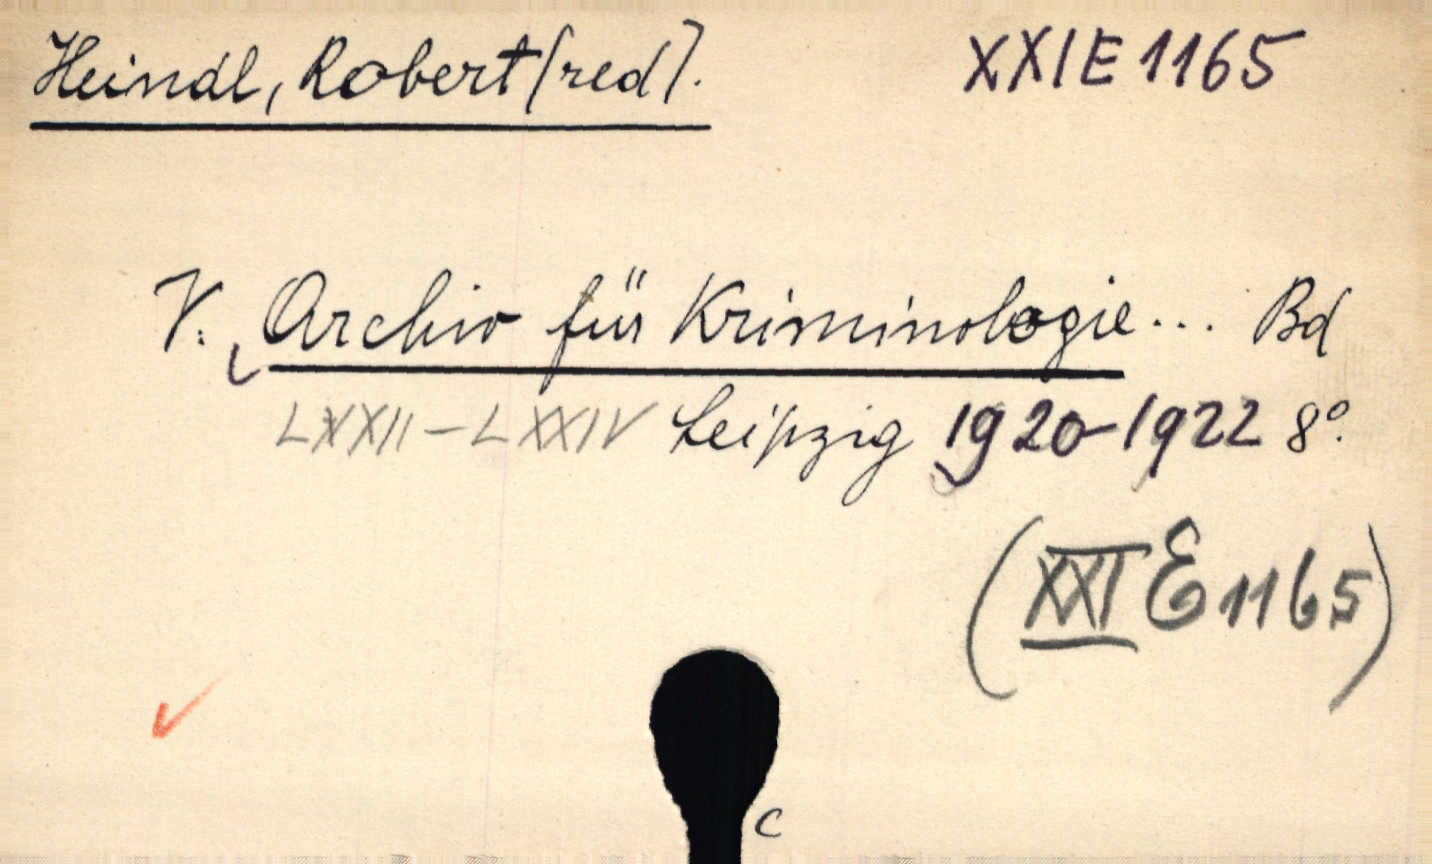 Heindl, Robert (red). XXI E 1165
V. Archiv für Kriminologie... Bd
LXXII-LXXIV Leipzig 1920-1922 8°.
(XXI E 1165)
c